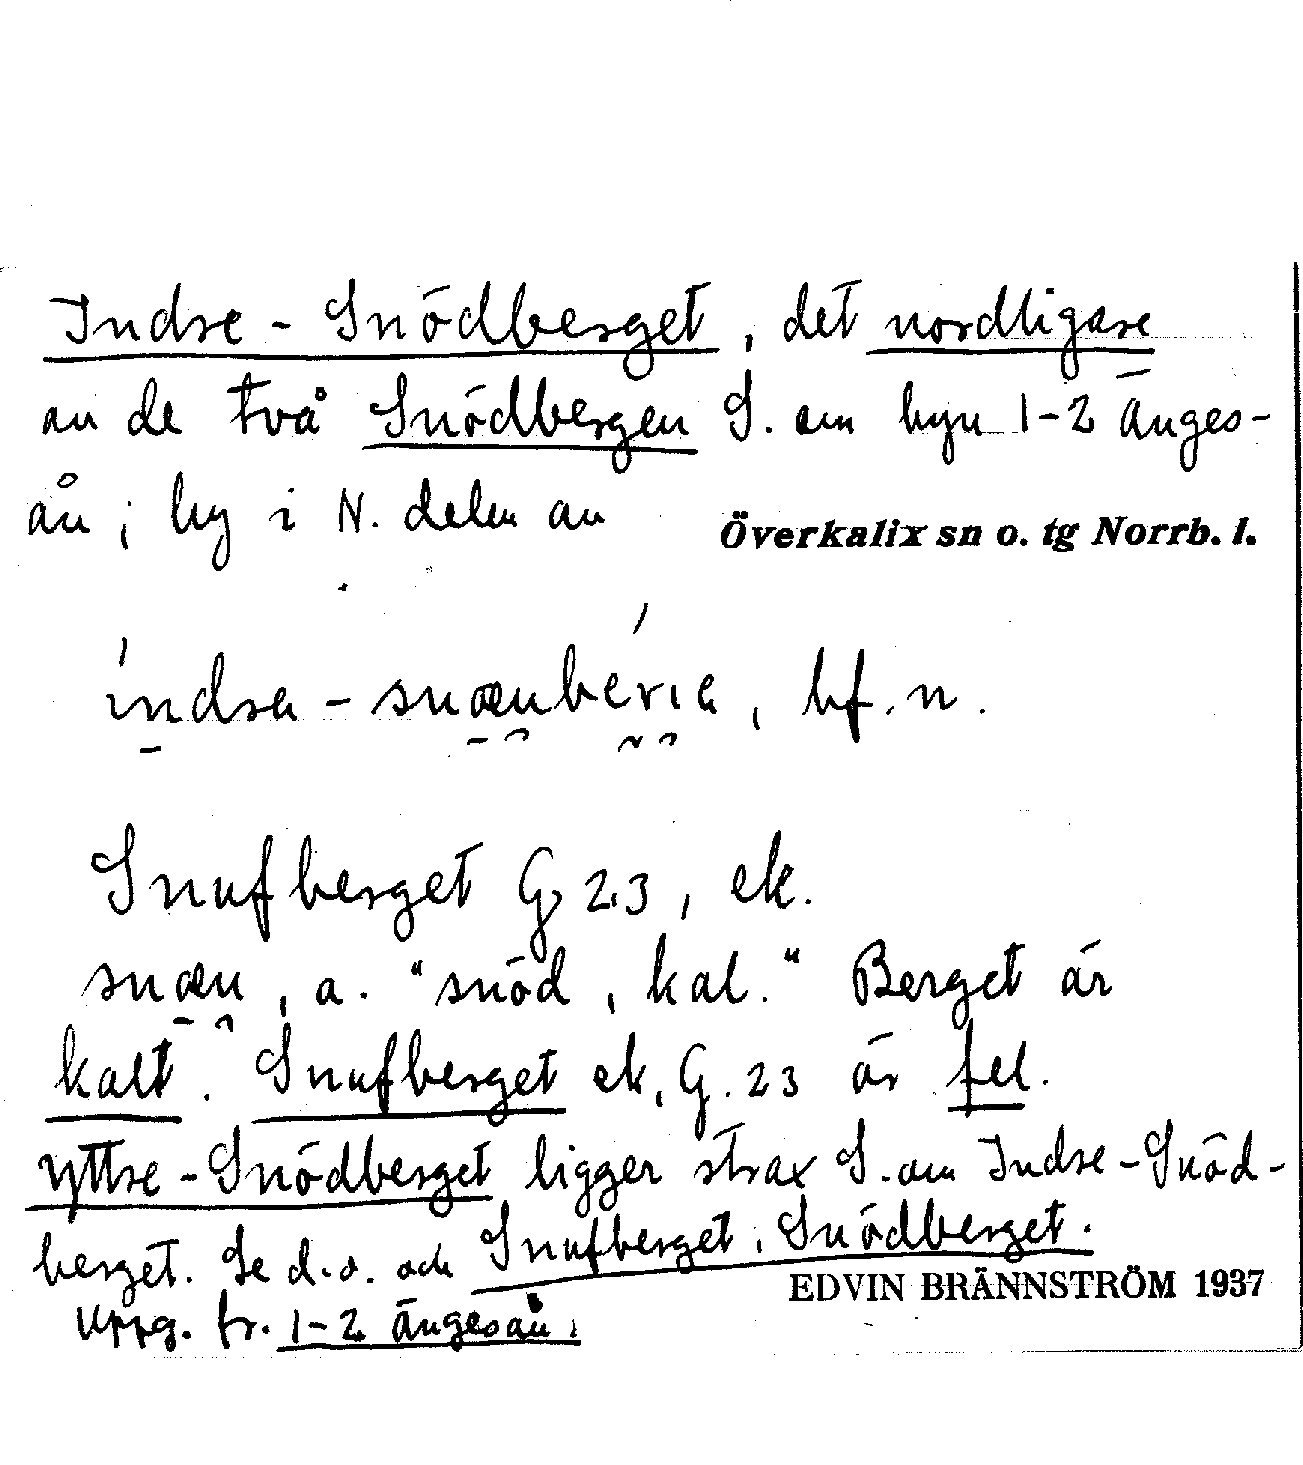 Indre-Snödberget, det nordligare
av de två Snödbergen S. om byn 1-2 Änges-
ån; by i N. delen av
Överkalix sn o. tg Norrb. l.
índra-snæubérıa, bf. n.
Snufberget G 23, ek.
snæu, a. "snöd, kal." Berget är
kalt. Snufberget ek. G. 23 är fel.
Yttre-Snödberget ligger strax S. om Indre-Snöd-
berget. Se d.o. och Snufberget, Snödberget.
EDVIN BRÄNNSTRÖM 1937
Uppg. fr. 1-2 Ängesån.